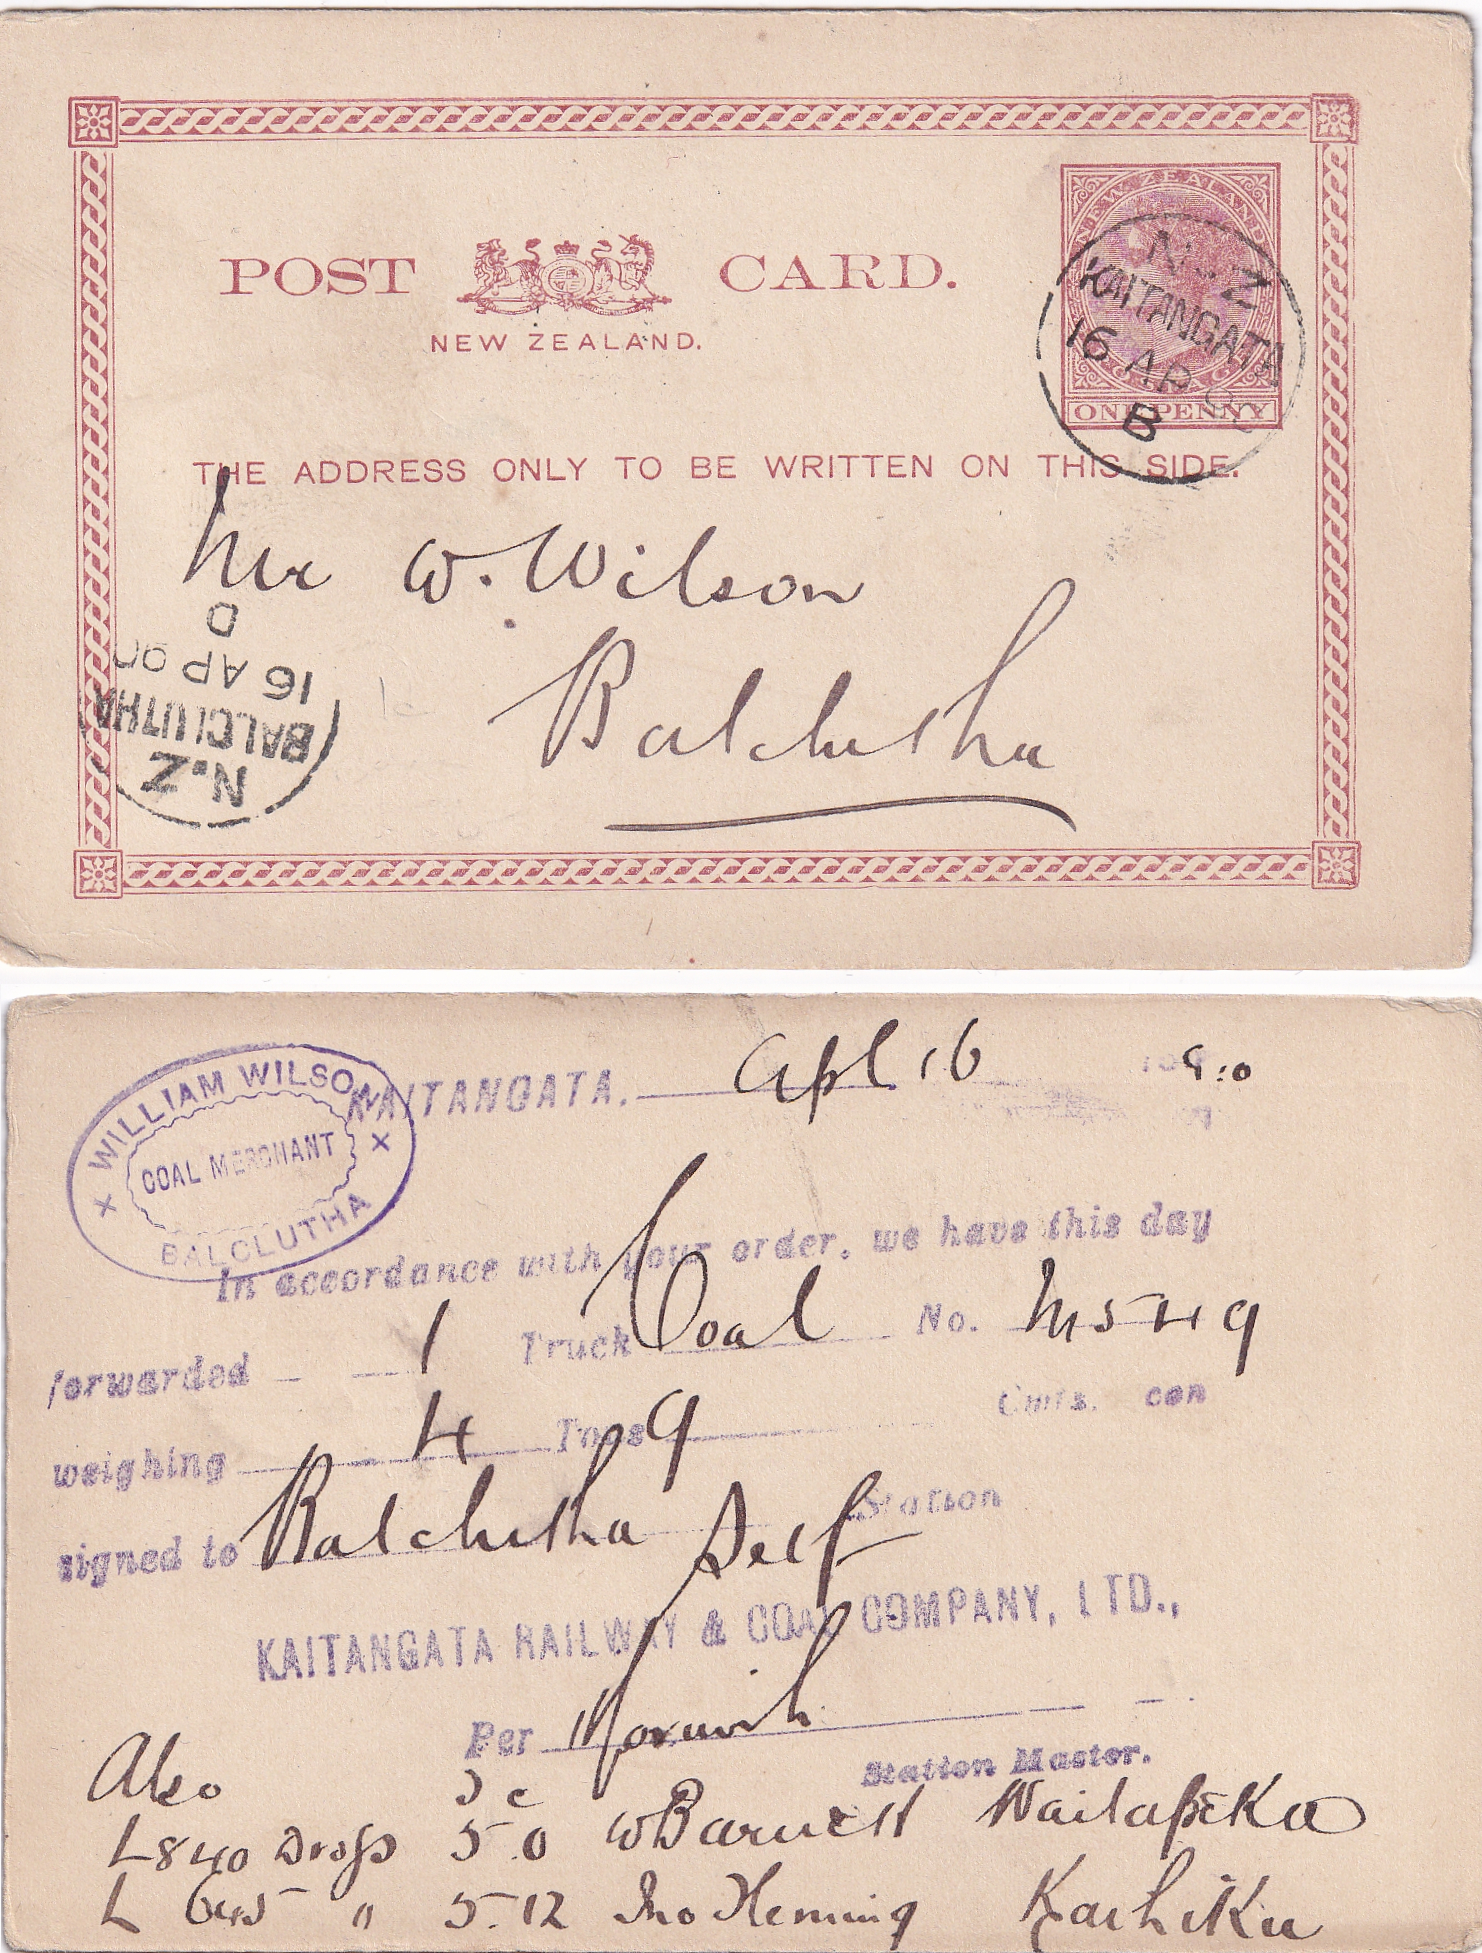 POST CARD.
NEW ZEALAND.
NEW ZEALAND
POSTAGE
ONE PENNY
N.Z
KAITANGATA
16 AP 90
B
THE ADDRESS ONLY TO BE WRITTEN ON THIS SIDE.
Mr W. Wilson
Balclutha
N.Z
BALCLUTHA
16 AP 90
D
WILLIAM WILSON
COAL MERCHANT
BALCLUTHA
KAITANGATA. Apl 16 9:0
In accordance with your order, we have this day
forwarded 1 Truck Coal No. M549
weighing 4 Tons 9 Cwts. con
signed to Balclutha Self Station
KAITANGATA RAILWAY & COAL COMPANY, LTD.,
Per
Station Master.
Also
L840 Dross 5.0 W Barnett Waitapeka
L 645 " 5.12 Jno Fleming Kaihiku